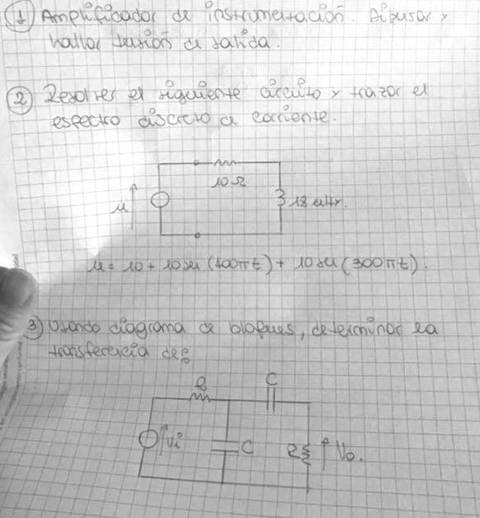 1 Amplificador de instrumentación. Dibujar y
hallar tensión de salida.
2 Resolver el siguiente circuito y trazar el
espectro discreto de corriente.
10Ω
u
18 mHr.
u = 10 + 10 sen (400πt) + 10 sen (300πt).
3 Usando diagrama de bloques, determinar la
transferencia de:
R
C
Vi
C
R
Vo.